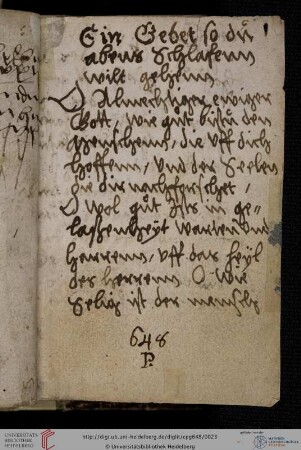 Ein Gebet so du 1
abens Schlafenn
wilt gehenn
O Almechtiger ewiger
Gott, wie gut bistu den
menschenn, die uff dich
hoffenn, und der Seelen
die dir nachforschet,
O wol gut ists in ge-
lassenheyt warten und
harrenn, uff das heyl
des herrenn O wie
Selig ist der mensch
648
P.
UNIVERSITÄTS-
BIBLIOTHEK
HEIDELBERG
http://digi.ub.uni-heidelberg.de/diglit/cpg648/0023
© Universitätsbibliothek Heidelberg